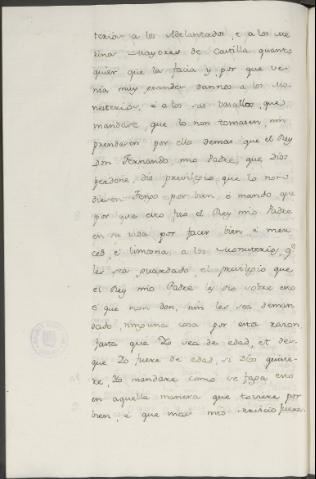 terios a los Adelantados, e a los me
rinos Mayores de Castilla quanto
quier que la facia y, por que ve-
nia muy grandes dannos a los Mo-
nesterios, é a los sus vasallos, que
mandase que lo non tomasen, nin
prendasen por ello demas que el Rey
don Fernando mio Padre, que Dios
perdone, dio previlegio que lo non
diesen Tengo por bien, é mando que
por que esto fizo el Rey mio Padre
en su vida por facer bien é mer-
ced, é limosna a los Monesterios, q.e
les sea guardado el privilegio que
el Rey mio Padre y dio sobre esto
é que non den, nin les sea deman
dado ninguna cosa por esta razon,
fasta que Yo sea de edad, et des-
que Yo fuere de edad, si Dios quisie-
re, Yo mandare como se faga esto
en aquella manera que toviere por
bien, é que mas mio servicio fuere.